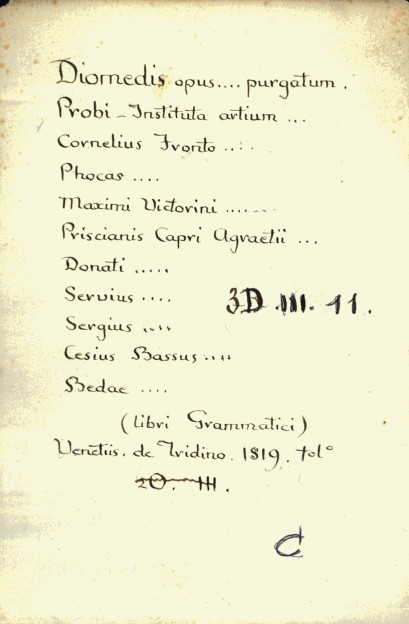 Diomedis opus.... purgatum.
Probi - Instituta artium ...
Cornelius Fronto ....
Phocas ....
Maximi Victorini .......
Priscianis Capri Agraetii ...
Donati .....
Servius ....
3D .III. 11.
Sergius ....
Cesius Bassus ....
Bedae ....
(libri Grammatici)
Venetiis. de Tridino. 1819. fol°
20. III.
C